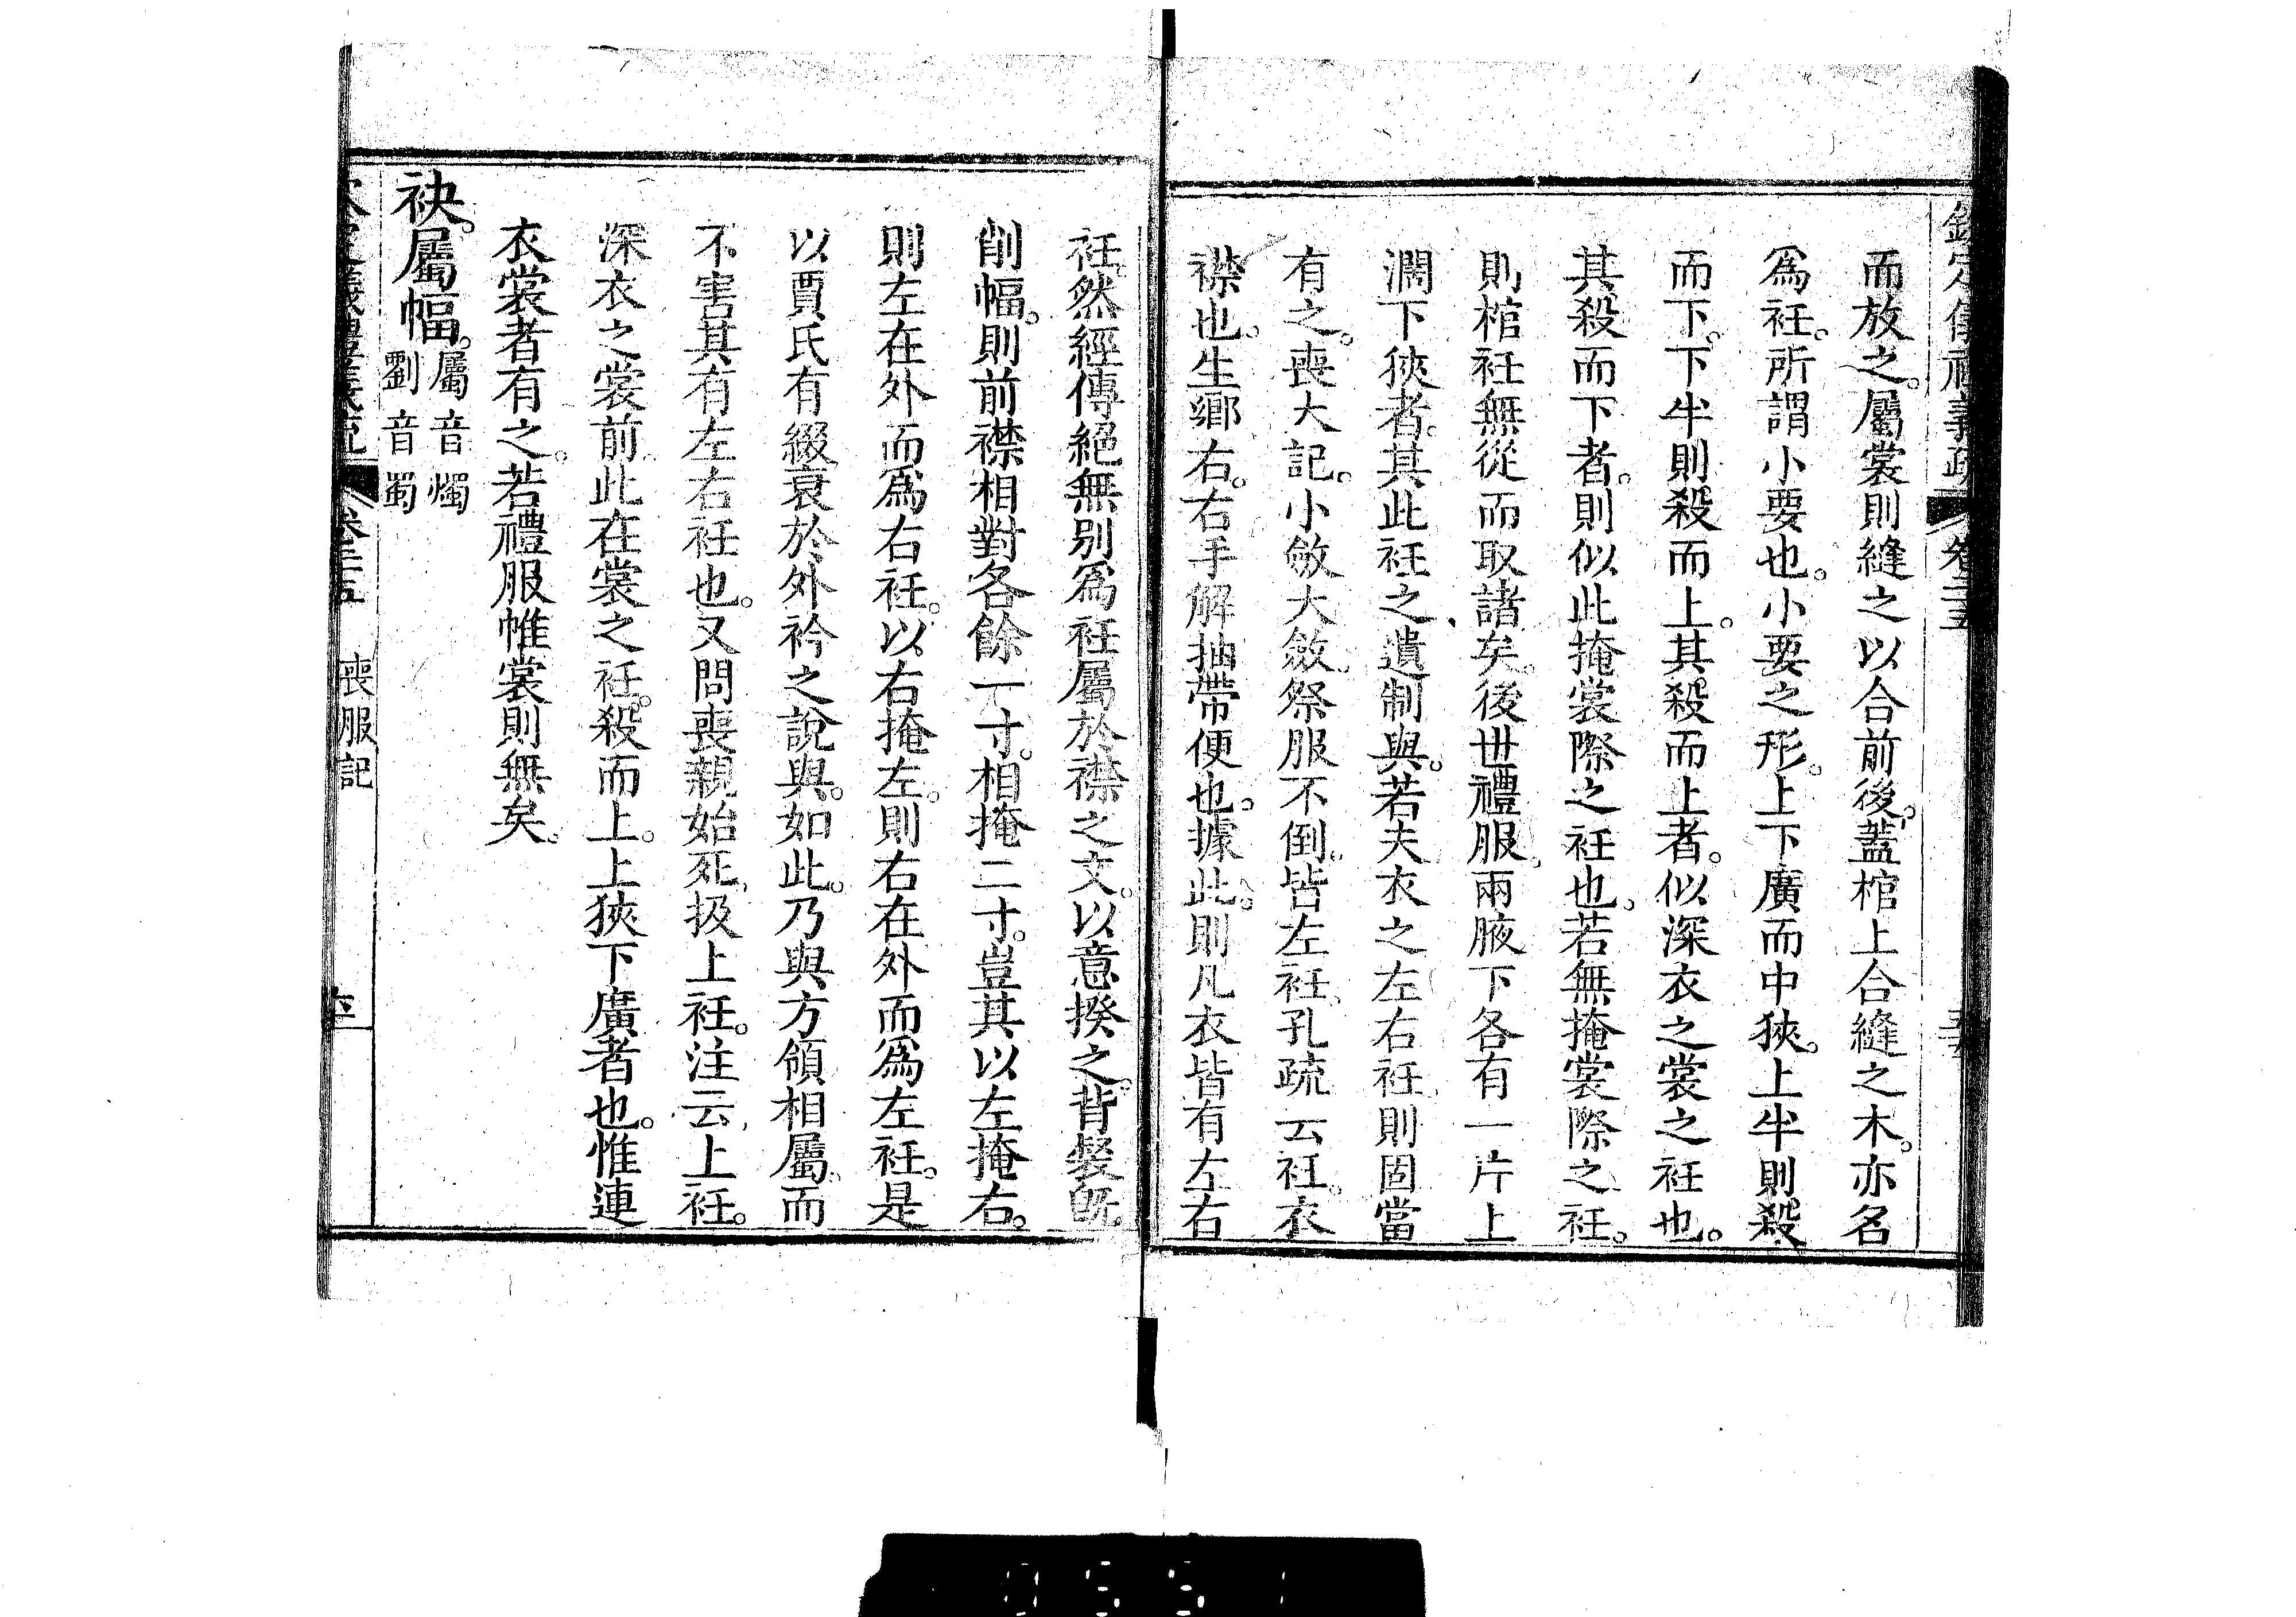 欽定儀禮義疏 卷二十五
而放之。屬裳則縫之以合前後。蓋棺上合縫之木。亦名
爲衽。所謂小要也。小要之形。上下廣而中狹。上半則殺
而下。下半則殺而上。其殺而上者。似深衣之裳之衽也。
其殺而下者。則似此掩裳際之衽也。若無掩裳際之衽。
則棺衽無從而取諸矣。後世禮服。兩腋下各有一片上
濶下狹者。其此衽之遺制與。若夫衣之左右衽則固當
有之。喪大記。小斂大斂。祭服不倒。皆左衽。孔疏云衽。衣
襟也。生鄉右。右手解抽帶便也。據此。則凡衣皆有左右
衽。然經傳絕無別爲衽屬於襟之文。以意揆之。背縫既
削幅。則前襟相對各餘一寸。相掩二寸。豈其以左掩右。
則左在外而爲右衽。以右掩左。則右在外而爲左衽。是
以賈氏有綴衰於外衿之說與。如此。乃與方領相屬。而
不害其有左右衽也。又問喪親始死。扱上衽。注云上衽。
深衣之裳前。此在裳之衽。殺而上。上狹下廣者也。惟連
衣裳者有之。若禮服帷裳則無矣。
袂。屬幅。屬音燭
劉音蜀
喪服記